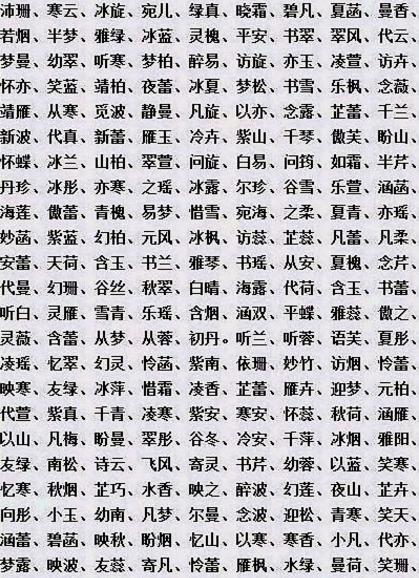 沛珊、寒云、冰旋、宛儿、绿真、晓霜、碧凡、夏菡、曼香、
若烟、半梦、雅绿、冰蓝、灵槐、平安、书翠、翠风、代云、
梦曼、幼翠、听寒、梦柏、醉易、访旋、亦玉、凌萱、访卉、
怀亦、笑蓝、靖柏、夜蕾、冰夏、梦松、书雪、乐枫、念薇、
靖雁、从寒、觅波、静曼、凡旋、以亦、念露、芷蕾、千兰、
新波、代真、新蕾、雁玉、冷卉、紫山、千琴、傲芙、盼山、
怀蝶、冰兰、山柏、翠萱、问旋、白易、问筠、如霜、半芹、
丹珍、冰彤、亦寒、之瑶、冰露、尔珍、谷雪、乐萱、涵菡、
海莲、傲蕾、青槐、易梦、惜雪、宛海、之柔、夏青、亦瑶、
妙菡、紫蓝、幻柏、元风、冰枫、访蕊、芷蕊、凡蕾、凡柔、
安蕾、天荷、含玉、书兰、雅琴、书瑶、从安、夏槐、念芹、
代曼、幻珊、谷丝、秋翠、白晴、海露、代荷、含玉、书蕾、
听白、灵雁、雪青、乐瑶、含烟、涵双、平蝶、雅蕊、傲之、
灵薇、含蕾、从梦、从蓉、初丹。听兰、听蓉、语芙、夏彤、
凌瑶、忆翠、幻灵、怜菡、紫南、依珊、妙竹、访烟、怜蕾、
映寒、友绿、冰萍、惜霜、凌香、芷蕾、雁卉、迎梦、元柏、
代萱、紫真、千青、凌寒、紫安、寒安、怀蕊、秋荷、涵雁、
以山、凡梅、盼曼、翠彤、谷冬、冷安、千萍、冰烟、雅阳、
友绿、南松、诗云、飞风、寄灵、书芹、幼蓉、以蓝、笑寒、
忆寒、秋烟、芷巧、水香、映之、醉波、幻莲、夜山、芷卉、
向彤、小玉、幼南、凡梦、尔曼、念波、迎松、青寒、笑天、
涵蕾、碧菡、映秋、盼烟、忆山、以寒、寒香、小凡、代亦、
梦露、映波、友蕊、寄凡、怜蕾、雁枫、水绿、曼荷、笑珊